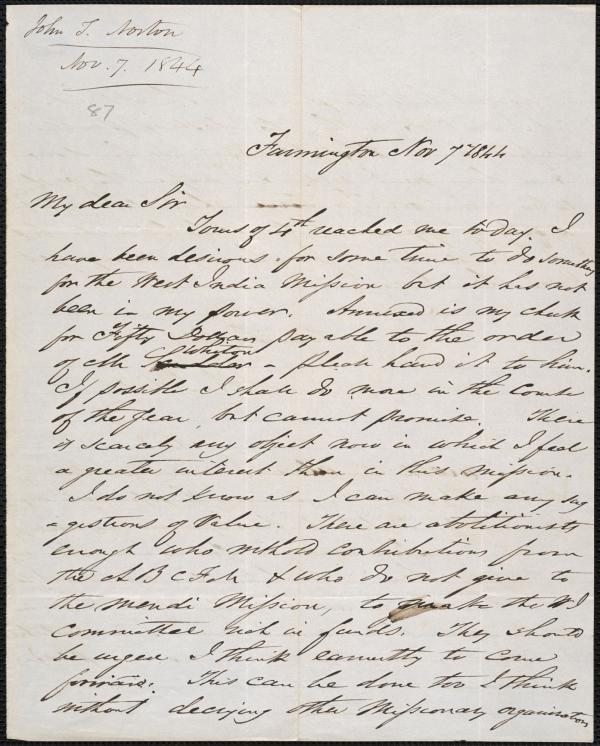 John T. Norton
Nov. 7. 1844
87
Farmington Nov 7 1844
My dear Sir
Yours of 4th reached me to day. I
have been desirous for some time to do something
for the West India Mission but it has not
been in my power. Annexed is my check
for Fifty Dollars payable to the order
of Mr Whiting - please hand it to him.
If possible I shall do more in the course
of the year, but cannot promise. There
is scarcely any object now in which I feel
a greater interest than in this mission.
I do not know as I can make any sug
-gestions of value. There are abolitionists
enough who withold contributions from
the A B C F M & who do not give to
the Mendi Mission, to make the W I
Committee rich in funds. They should
be urged I think earnestly to come
forward. This can be done too I think
without decrying other Missionary organizations